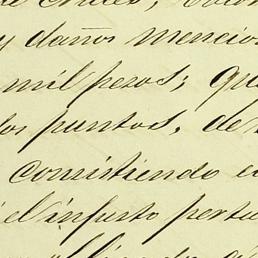 y daños mencio
mil pesos; que
los puntos, de
consistiendo e
el injusto pertu